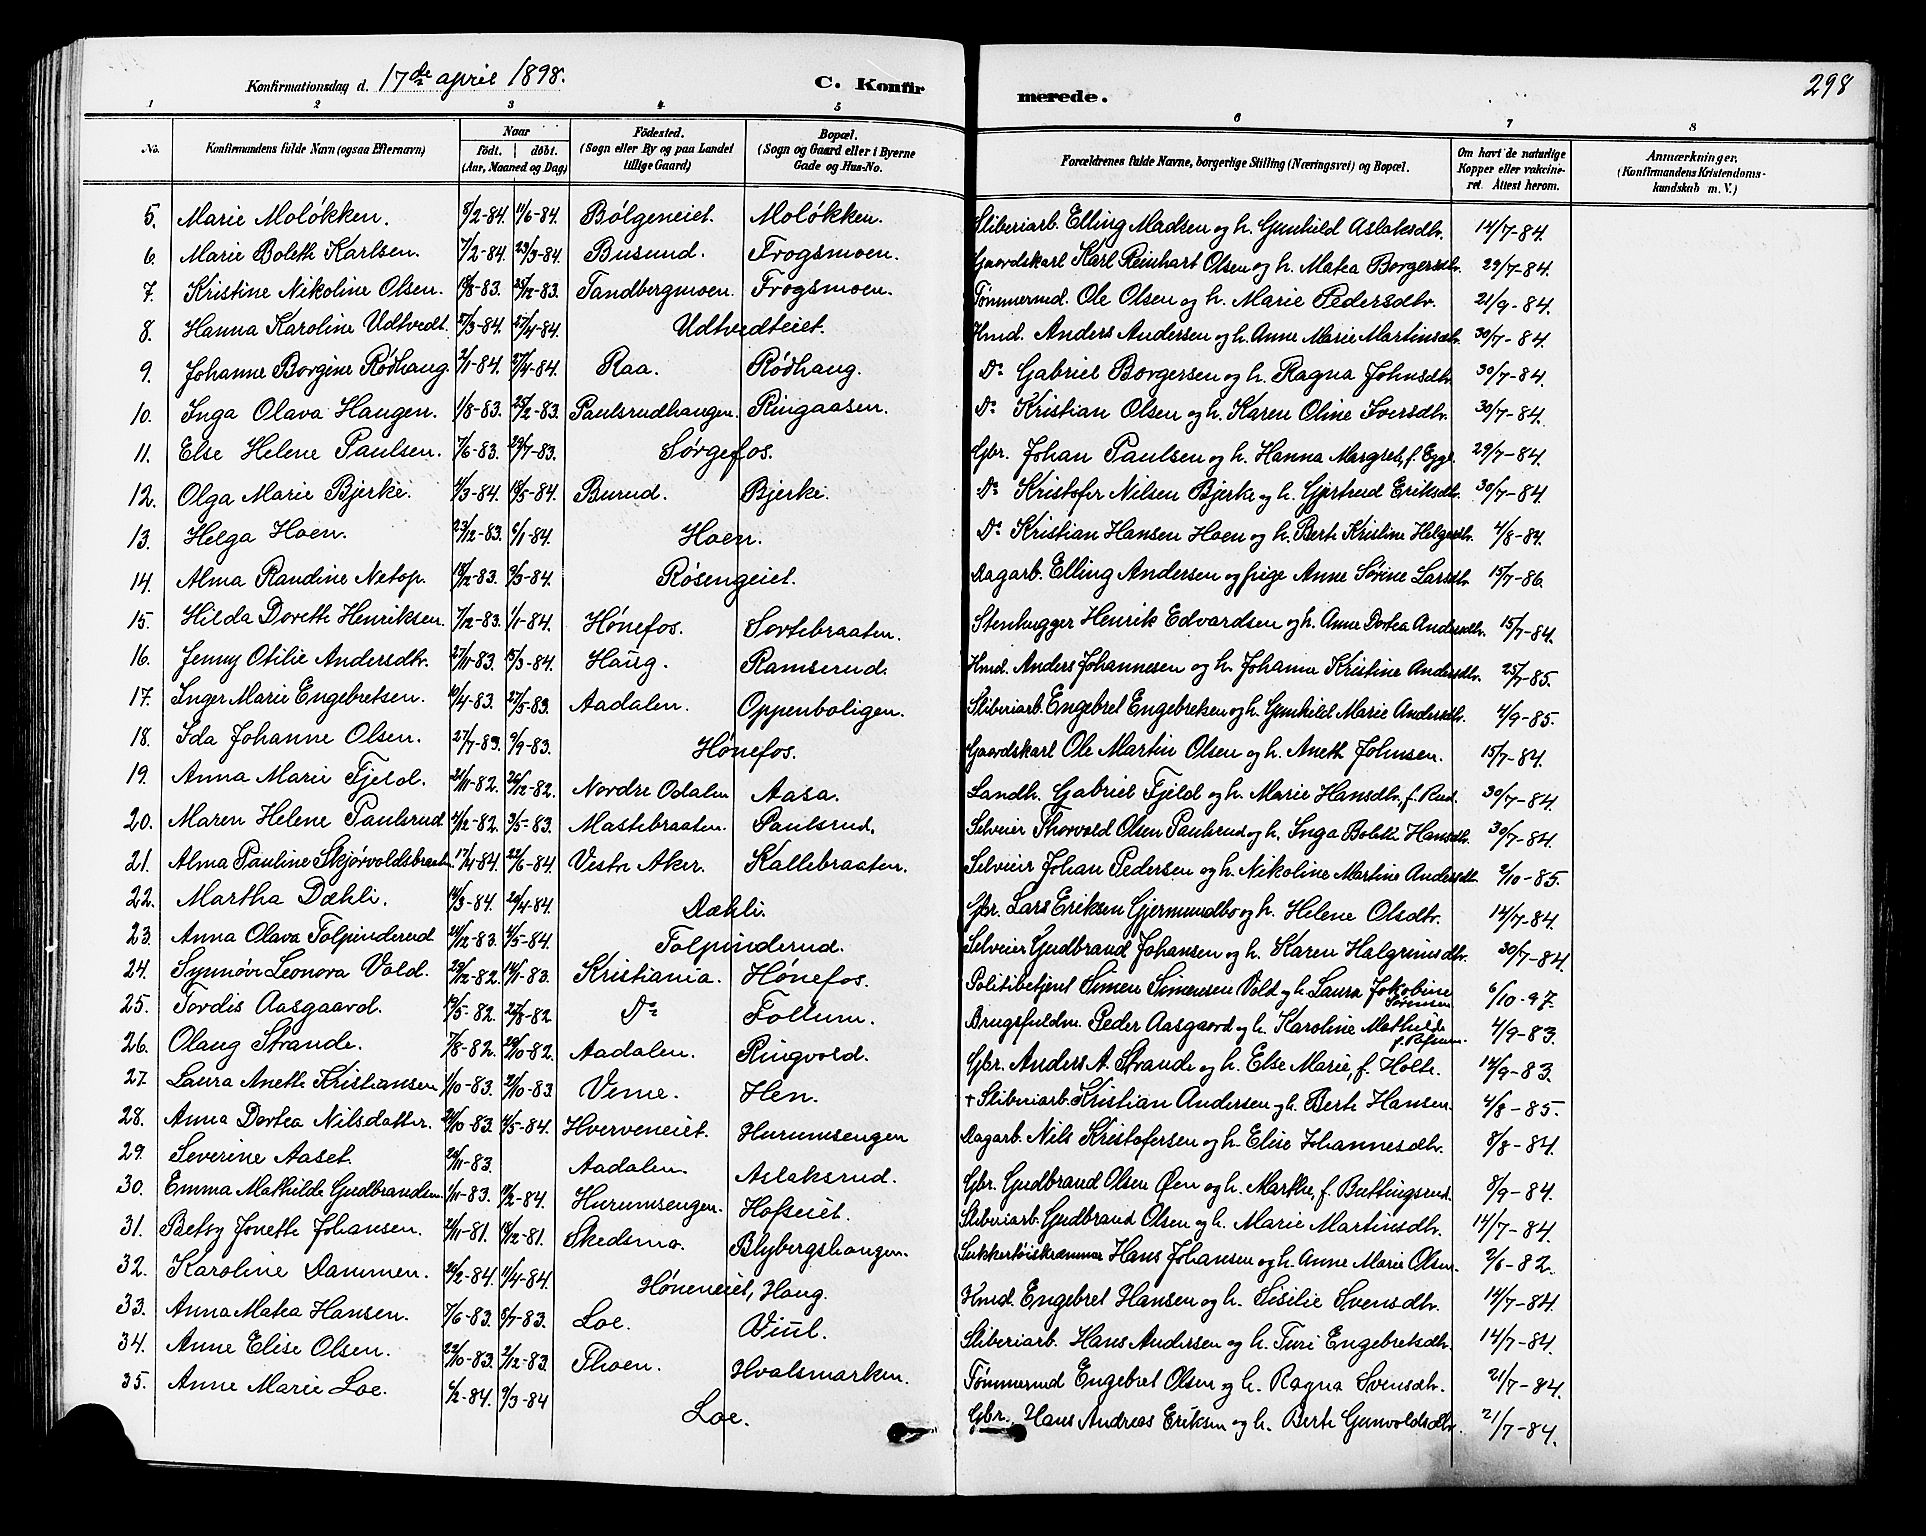 Konfirmationsdag d. 17de april 1898. C. Konfirmerede. 298
1 2 3 4 5 6 7 8
No. Konfirmandens fulde Navn (ogsaa Efternavn) Naar födt. döbt. (Aar, Maaned og Dag) Födested. (Sogn eller By og paa Landet tillige Gaard) Bopæl. (Sogn og Gaard eller i Byerne Gade og Hus-No. Forældrenes fulde Navne, borgerlige Stilling (Næringsvei) og Bopæl. Om havt de naturlige Kopper eller vakcineret. Attest herom. Anmærkninger. (Konfirmandens Kristendomskundskab m. V.)
5. Marie Moløkken. 8/2-84. 11/6-84. Bølgeneiet. Moløkken. Sliberiarb. Elling Madsen og h. Gunhild Aslaksdtr. 14/7-84.
6. Marie Boleth Karlsen. 7/2-84. 23/3-84. Busund. Frogsmoen. Gaardskarl Karl Reinhart Olsen og h. Matea Borgersdtr. 29/7-84.
7. Kristine Nikoline Olsen. 18/8-83. 25/12-83. Tandbergmoen. Frogsmoen. Tømmermd. Ole Olsen og h. Marie Pedersdtr. 21/9-84.
8. Hanna Karoline Udtvedt. 27/3-84. 27/4-84. Udtvedteiet. Hmd. Anders Andersen og h. Anne Marie Martinsdtr. 30/7-84.
9. Johanne Borgine Rødhaug. 2/1-84. 27/4-84. Raa. Rødhaug. Do Gabriel Borgersen og h. Ragna Johnsdtr. 30/7-84.
10. Inga Olava Haugen. 1/8-83. 25/12-83. Paulsrudhaugen. Ringaasen. Do Kristian Olsen og h. Karen Oline Iversdtr. 30/7-84.
11. Else Helene Paulsen. 7/6-83. 29/7-83. Sørgefos. Gbr. Johan Paulsen og h. Hanna Margret, f. Egge. 29/7-84.
12. Olga Marie Bjerke. 4/3-84. 18/5-84. Burud. Bjerke. Do Kristofer Nilsen Bjerke og h. Gjertrud Eriksdtr. 30/7-84.
13. Helga Hoen. 23/12-83. 6/1-84. Hoen. Do Kristian Hansen Hoen og h. Berte Kristine Helgesdtr. 4/8-84.
14. Alma Randine Netop. 18/12-83. 9/3-84. Røsengeiet. Dagarb. Elling Andersen og pige Anne Sørine Larsdtr. 15/7-86.
15. Hilda Dorethe Henriksen. 7/12-83. 1/1-84. Hønefos. Sortebraaten. Stenhugger Henrik Edvardsen og h. Anne Dortea Andersdtr. 15/7-84.
16. Jenny Otilie Andersdtr. 27/11-83. 15/3-84. Haug. Ramserud. Hmd. Anders Johannesen og h. Johanne Kristine Andersdtr. 25/7-85.
17. Inger Marie Engebretsen. 10/4-83. 27/5-83. Aadalen. Oppenboligen. Sliberiarb. Engebret Engebretsen og h. Gunhild Marie Andersdtr. 4/9-85.
18. Ida Johanne Olsen. 27/7-83. 9/9-83. Hønefos. Gaardskarl Ole Martin Olsen og h. Aneth Johnsen. 15/7-84.
19. Anna Marie Fjeld. 21/11-82. 26/12-82. Nordre Odalen Aasa. Landh. Gabriel Fjeld og h. Marie Hansdtr. f. Rud. 30/7-84.
20. Maren Helene Paulsrud 4/12-82. 3/5-83. Mastebraaten. Paulsrud. Selveier Thorvald Olsen Paulsrud og h. Inga Bolette Hansdtr. 30/7-84.
21. Alma Pauline Skjørvoldsbraaten 17/4-84. 22/6-84. Vestre Aker. Kallebraaten. Selveier Johan Pedersen og h. Nikoline Martine Andersdtr. 2/10-85.
22. Martha Dæhli. 14/3-84. 20/4-84. Dæhli. Gbr. Lars Eriksen Gjermundbo og h. Helene Olsdtr. 14/7-84.
23. Anna Olava Tolpinderud 24/12-83. 4/5-84. Tolpinderud. Selveier Gudbrand Johansen og h. Karen Halgrimsdtr. 30/7-84.
24. Synnøve Leonora Vold. 29/12-82. 14/1-83. Kristiania. Hønefos. Politibetjent Simen Simensen Vold og h. Laura Jokobine Sørensen 6/10-97.
25. Tordis Aasgaard. 19/5-82. 27/8-82 Do Follum. Brugsfuldm. Peder Aasgaard og h. Karoline Mathilde 4/9-83.
26. Olaug Strande. 7/8-82. 29/10-82. Aadalen. Ringvold. Gbr. Anders A. Strande og h. Else Marie, f. Holte. 12/9-83.
27. Laura Anette Kristiansen 1/10-83. 21/10-83. Veme. Hen. + Sliberiarb. Kristian Andersen og h. Berte Hansen. 4/8-85.
28. Anna Dortea Nilsdatter. 21/10-83. 4/5-84. Hverveneiet. Hurumsengen Dagarb. Nils Kristofersen og h. Elise Johannesdtr. 8/8-84.
29. Severine Aaset. 29/11-83. Aadalen. Aslaksrud. Gbr. Gudbrand Olsen Øen og h. Marthe, f. Buttingsrud. 8/9-84.
30. Emma Mathilde Gudbrandsen. 1/11-83. 17/2-84. Hurumsengen. Hofseiet. Sliberiarb. Gudbrand Olsen og h. Marie Martinsdtr. 14/7-84.
31. Betsy Jonette Johansen. 2/11-81. 18/12-81. Skedsmo. Blybergshaugen. Sukkertøiskræmmer Hans Johansen og h. Anne Marie Olsen. 2/6-82.
32. Karoline Dammen. 21/2-84. 11/4-84. Høneneiet, Haug. Hmd. Engebret Hansen og h. Sisilie Svensdtr. 14/7-84.
33. Anna Matea Hansen. 7/6-83. 8/7-83. Loe. Viul. Sliberiarb. Hans Andersen og h. Turi Engebretsdtr. 14/7-84.
34. Anne Elise Olsen. 22/10-83. 2/12-83. Thoen. Hvalsmarken. Tømmermd Engebret Olsen og h. Ragna Svensdtr. 21/7-84.
35. Anne Marie Loe. 6/2-84. 9/3-84 Loe. Gbr. Hans Andreas Eriksen og h. Berte Gunvoldsdtr. 21/7-84.